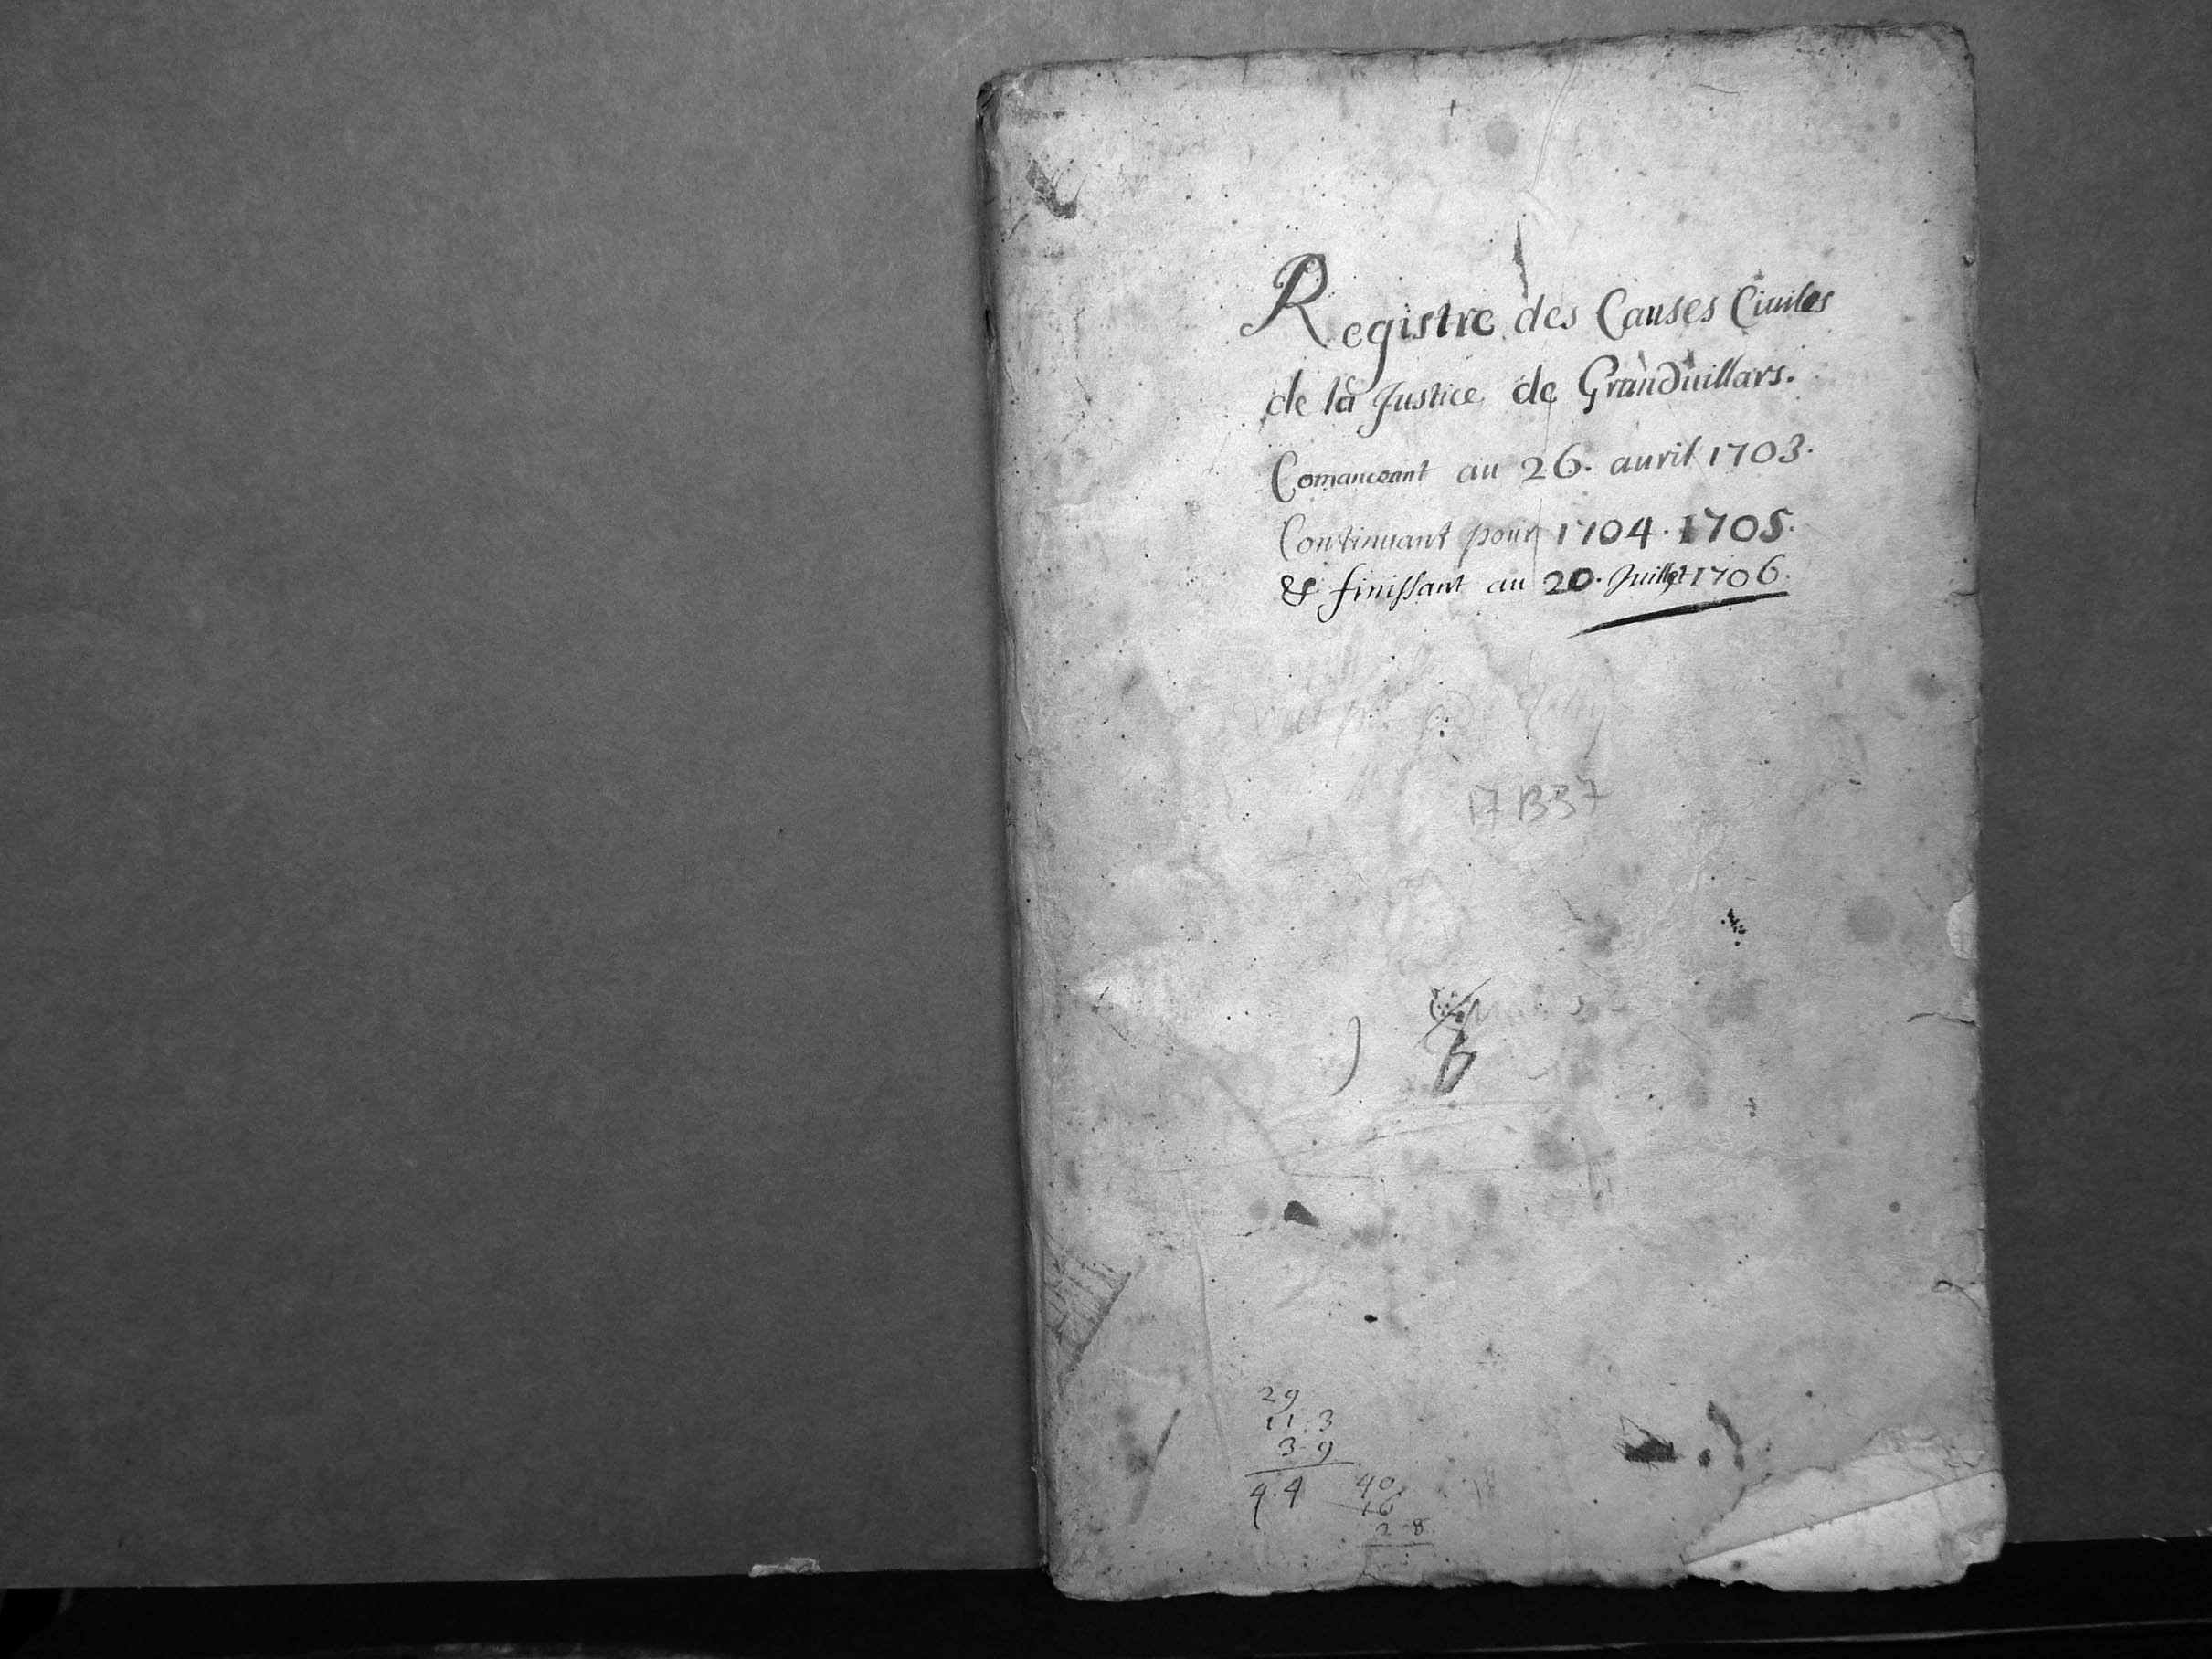 Registre des Causes Ciuiles
de la Justice de Granduillars.
Comanceant au 26. auril 1703.
Continuant pour 1704. 1705.
& finissant au 20. Juillet 1706.
17 B37
29
11. 3
3- 9
4. 4
40
16
2-8